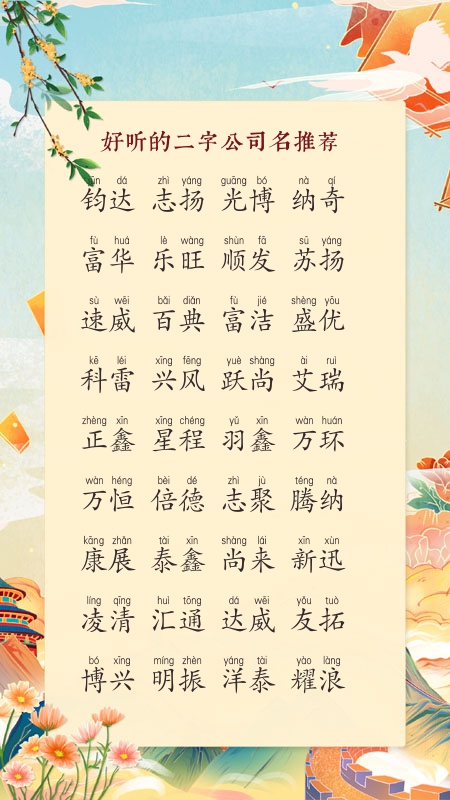 好听的二字公司名推荐
jūn dá zhì yáng guāng bó nà qí
钧达 志扬 光博 纳奇
fù huá lè wàng shùn fā sū yáng
富华 乐旺 顺发 苏扬
sù wēi bǎi diǎn fù jié shèng yōu
速威 百典 富洁 盛优
kē léi xīng fēng yuè shàng ài ruì
科雷 兴风 跃尚 艾瑞
zhèng xīn xīng chéng yǔ xīn wàn huán
正鑫 星程 羽鑫 万环
wàn héng bèi dé zhì jù téng nà
万恒 倍德 志聚 腾纳
kāng zhǎn tài xīn shàng lái xīn xùn
康展 泰鑫 尚来 新迅
líng qīng huì tōng dá wēi yǒu tuò
凌清 汇通 达威 友拓
bó xīng míng zhèn yáng tài yào làng
博兴 明振 洋泰 耀浪